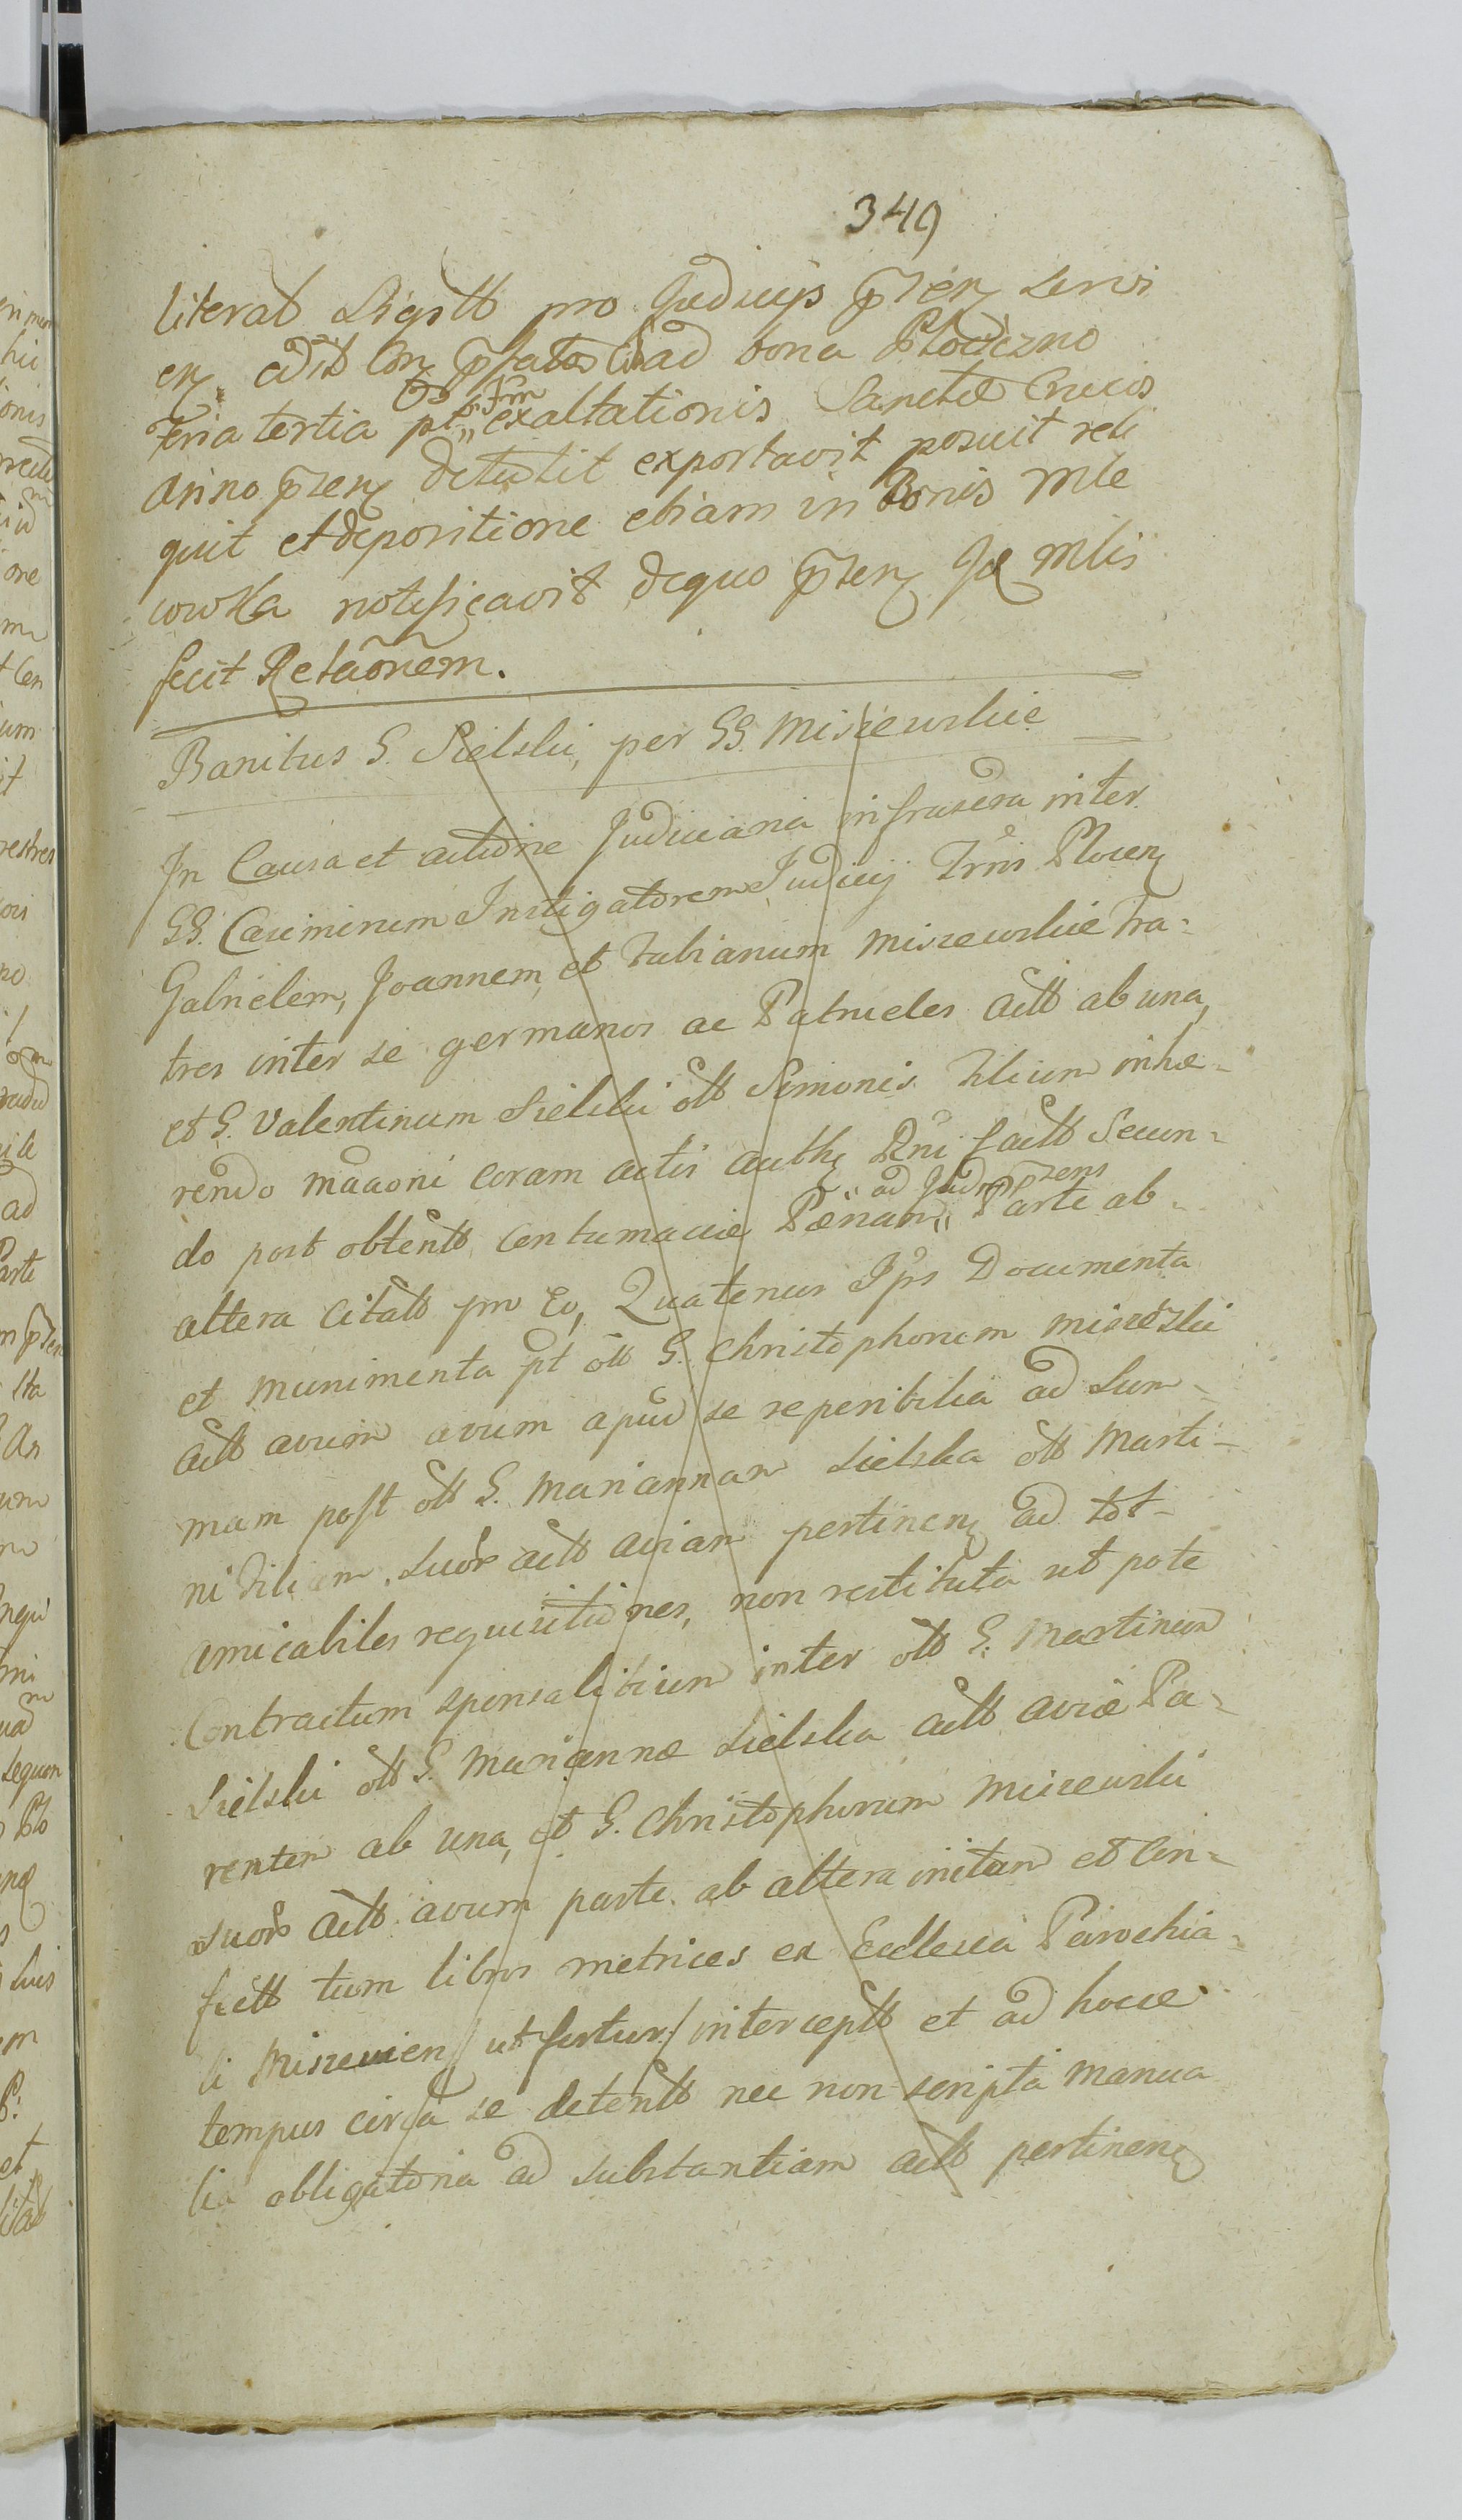 349
literat Sigitt pro Judicijs pñzeñ servi
eñ edit Con pfatos Cis ad bona Płociczno
Feria tertia pt exaltationis Sanctæ Crucis
Ftm
Anno pñzeñ detulit exportavit posuit reli
quit et depositione etiam in Bonis Mle
cowka notificavit de quo pñzeñ Mlis
fecit Relaõnem.
Banitus G. Sielski, per GG. Miszewskie
In Causa et actione Judiciaria infrascra inter
GG. Casimirum Instigatorem Judicij Trris Plocen
Gabrielem, Joannem, et Fabianum Miszewskie Fra-
tres inter se germanos ac Patrueles Actt ab una,
et G. Valentinum Sielski ott Simonis Filium inhæ-
rendo maaoni coram actis authen Dni factt Secun-
ad Judm pzens
do post obtentt contumaciæ Pœnam,, Parte ab
altera citatt pro Eo, Quatenus Ips Documenta
et munimenta pt ott G. Christophorum Miszewski
Actt avum avum apud se reperibilia ad Sum-
mam post ott G. Mariannam Sielska ott Marti-
ni Filiam, suor actt aviam pertinen ad tot-
amicabiles requisitiones, non restituta ut pote
Contractum sponsalitium inter ott G. Martinum
Sielski ott G. Mariannæ Sielska actt aviæ Pa-
rentem ab una, et G. Christophorum Miszewski
suor actt avum parte ab altera initum et con-
fectt tum libros metrices ex Ecclesia Parochia-
li Miszewien / ut fertur / interceptt et ad hocce
tempus circa se detentt nec non scripta manua
lia obligatoria ad substantiam actt pertinen